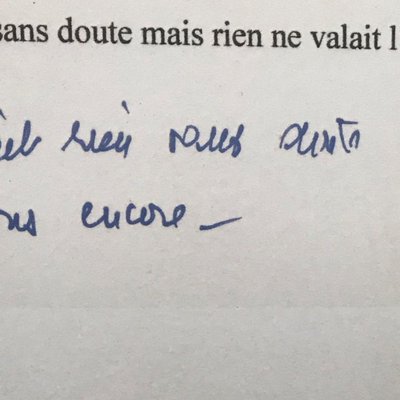 sans doute mais rien ne valait l
rien sans doute
encore –